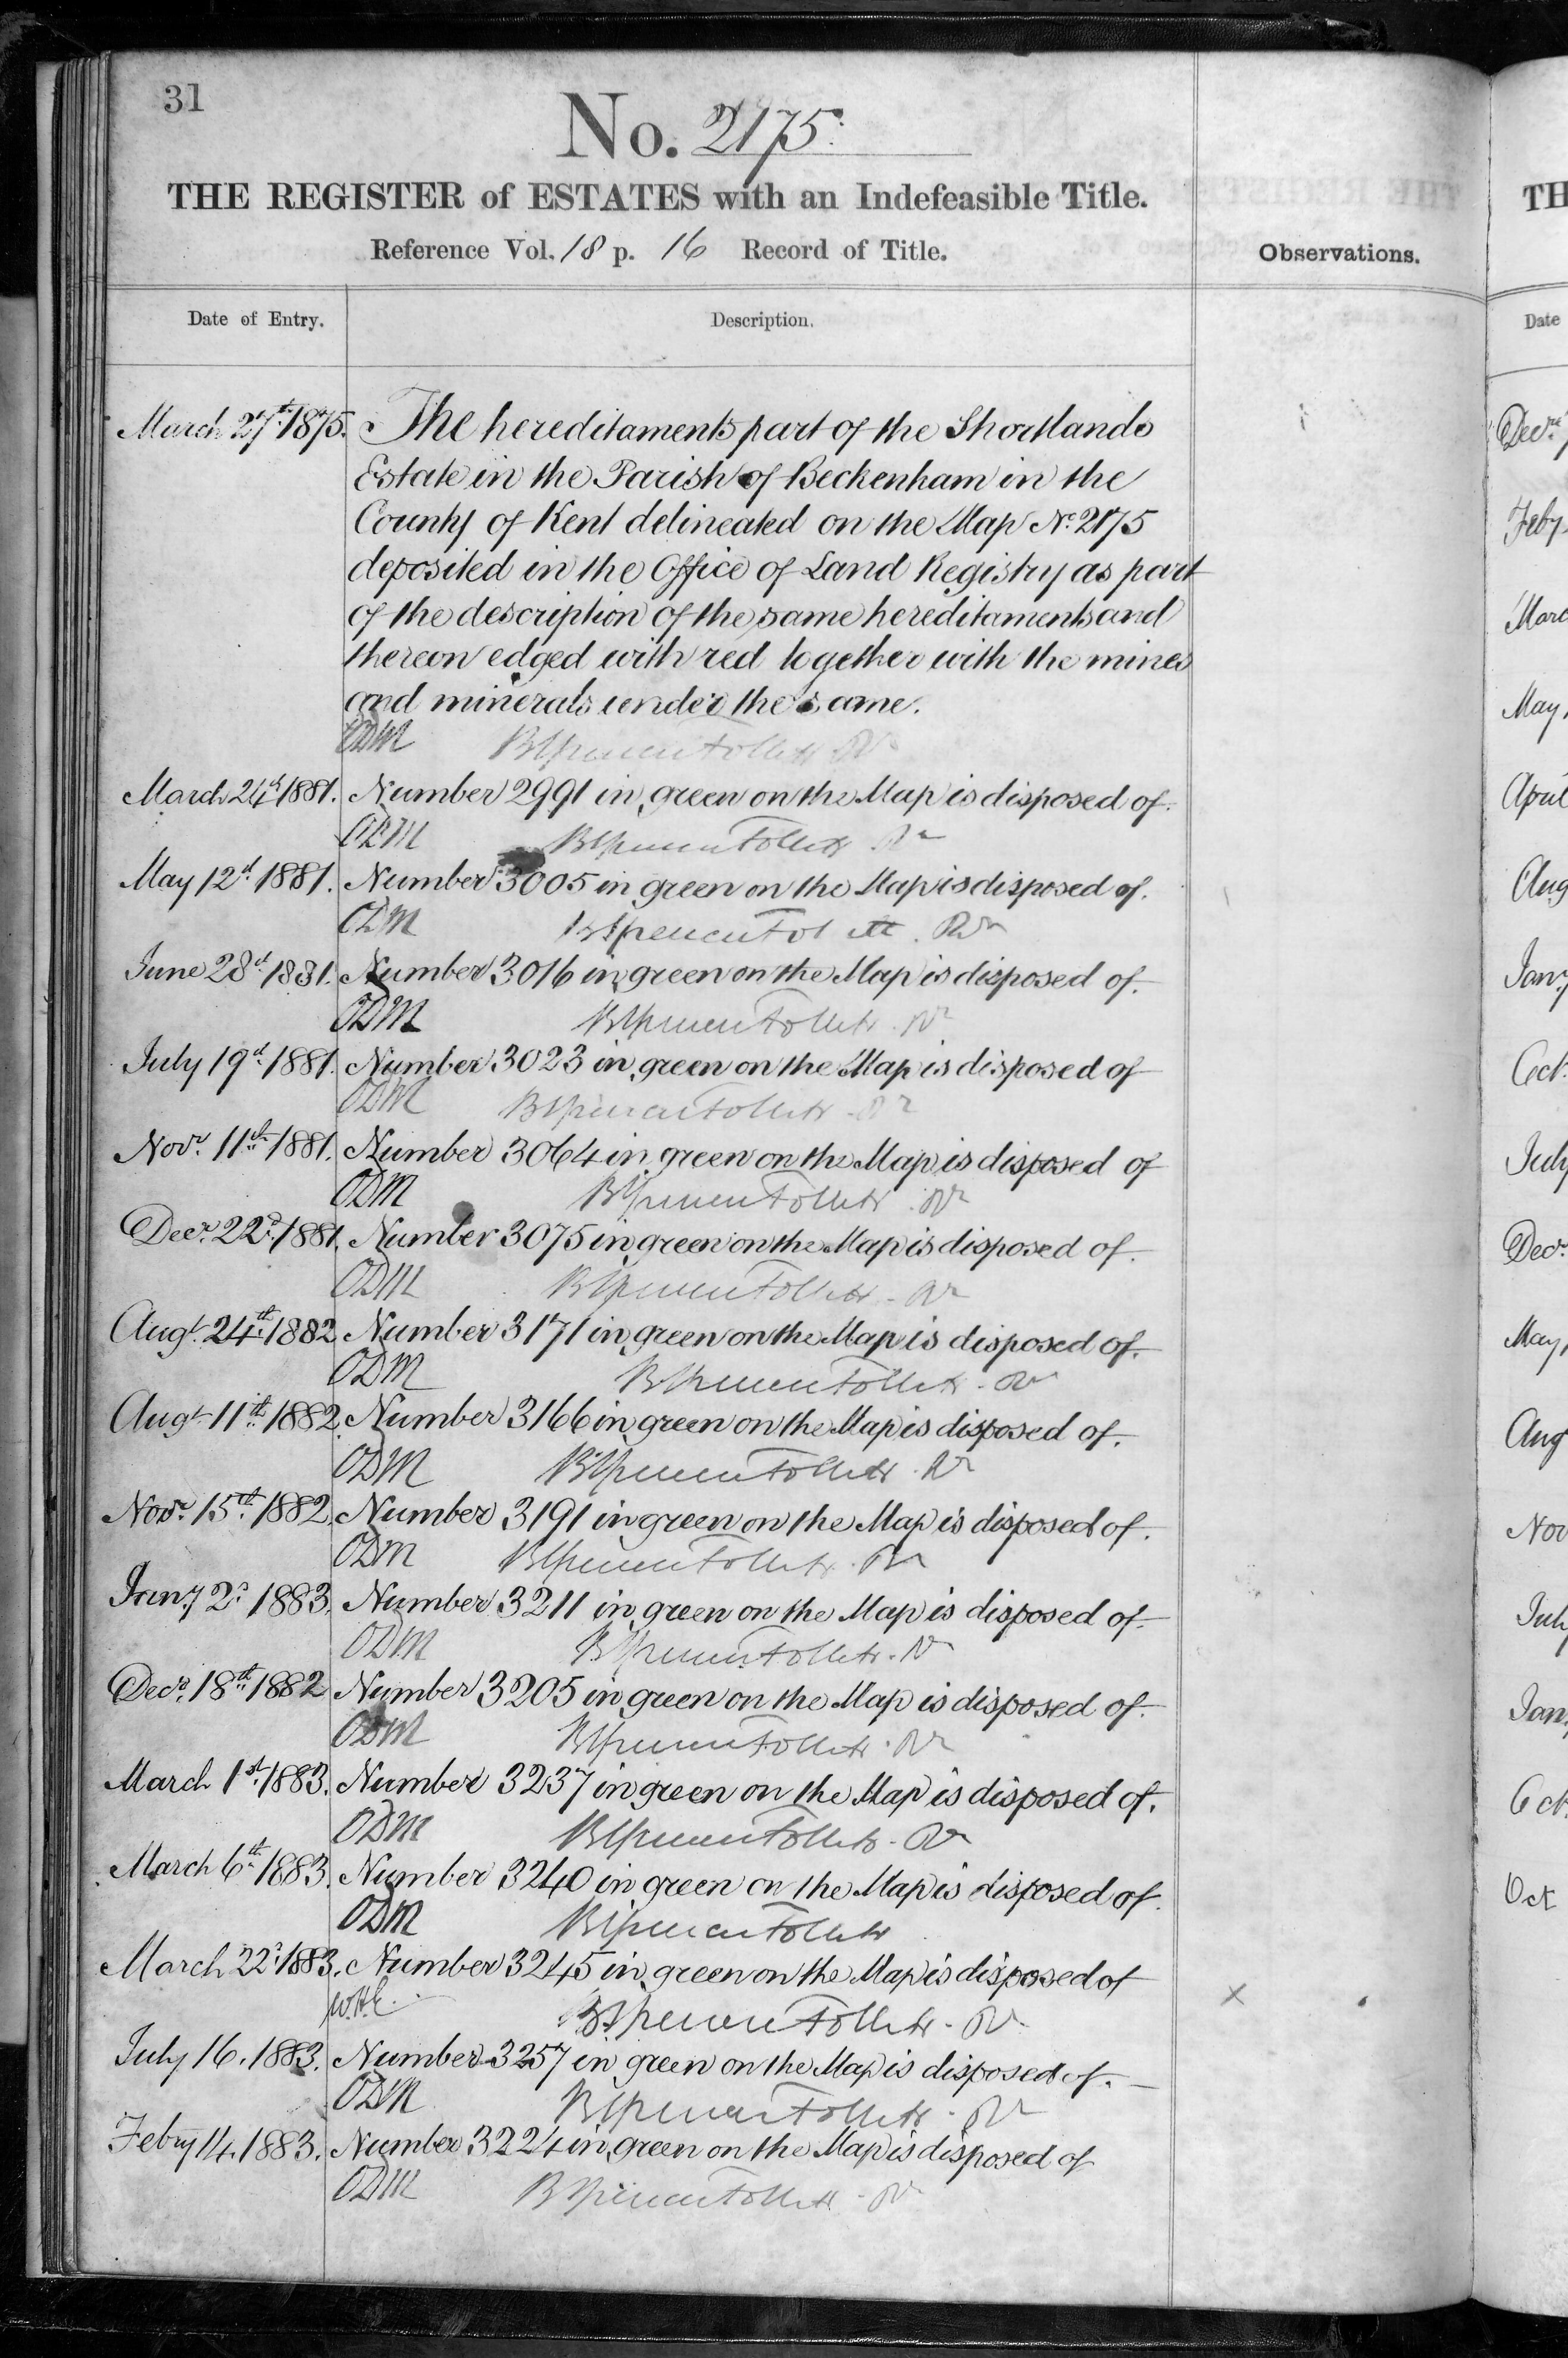 31
No. 2175.
THE REGISTER of ESTATES with an Indefeasible Title.
Reference Vol. 18 p. 16 Record of Title.
Observations.
Date of Entry.
Description.
March 27th 1875. The hereditaments part of the Shortlands
Estate in the Parish of Beckenham in the
County of Kent delineated on the Map No. 2175
deposited in the Office of Land Registry as part
of the description of the same hereditaments and
thereon edged with red together with the mines
and minerals under the same.
ODM Brent Spencer Follett Rr
March 24th 1881. Number 2991 in green on the Map is disposed of.
ODM BSpencer Follett Rr
May 12th 1881. Number 3005 in green on the Map is disposed of.
ODM BSpencer Follett Rr
June 28th 1881. Number 3016 in green on the Map is disposed of.
ODM BSpencer Follett Rr
July 19th 1881. Number 3023 in green on the Map is disposed of
ODM BSpencer Follett Rr
Novr. 11th 1881. Number 3064 in green on the Map is disposed of
ODM BSpencer Follett Rr
Decr. 22d. 1881. Number 3075 in green on the Map is disposed of.
ODM BSpencer Follett Rr
Augt. 24th 1882. Number 3171 in green on the Map is disposed of.
ODM BSpencer Follett Rr
Augt. 11th 1882. Number 3166 in green on the Map is disposed of.
ODM BSpencer Follett Rr
Novr. 15th 1882. Number 3191 in green on the Map is disposed of.
ODM BSpencer Follett Rr
Jany 2d 1883. Number 3211 in green on the Map is disposed of.
ODM BSpencer Follett Rr
Decr. 18th 1882 Number 3205 in green on the Map is disposed of.
ODM BSpencer Follett Rr
March 1st 1883. Number 3237 in green on the Map is disposed of.
ODM BSpencer Follett Rr
March 6th 1883. Number 3240 in green on the Map is disposed of.
ODM BSpencer Follett
March 22d 1883. Number 3245 in green on the Map is disposed of
W.H.E. BSpencer Follett Rr
x
July 16. 1883. Number 3257 in green on the Map is disposed of.
ODM BSpencer Follett Rr
Feby 14. 1883. Number 3224 in green on the Map is disposed of
ODM BSpencer Follett Rr
TH
Date
Decr.
Feby
Marc
May
April
Aug
Jany
Oct.
July
Decr.
May
Aug
Nov
July
Jan
Oct
Oct